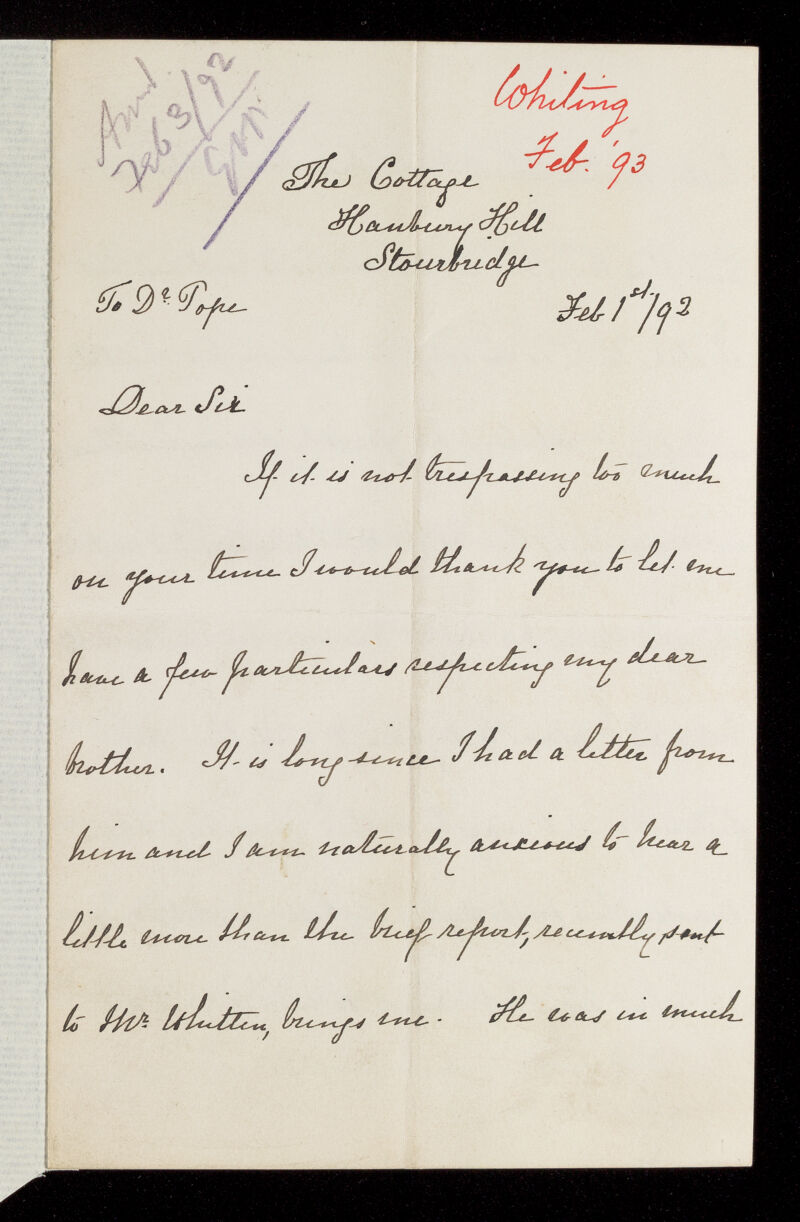 Ansd.
Feb 3/92
Whiting
Feb. '93
The Cottage
Hanbury Hill
Stourbridge
To Dr. Pope
Feb 1st/92
Dear Sir
If it is not trespassing too much
on your time I would thank you to let me
have a few particulars respecting my dear
brother. It is long since I had a letter from
him and I am naturally anxious to hear a
little more than the brief report, recently sent
to Mr. Whitten, brings me. He was in much